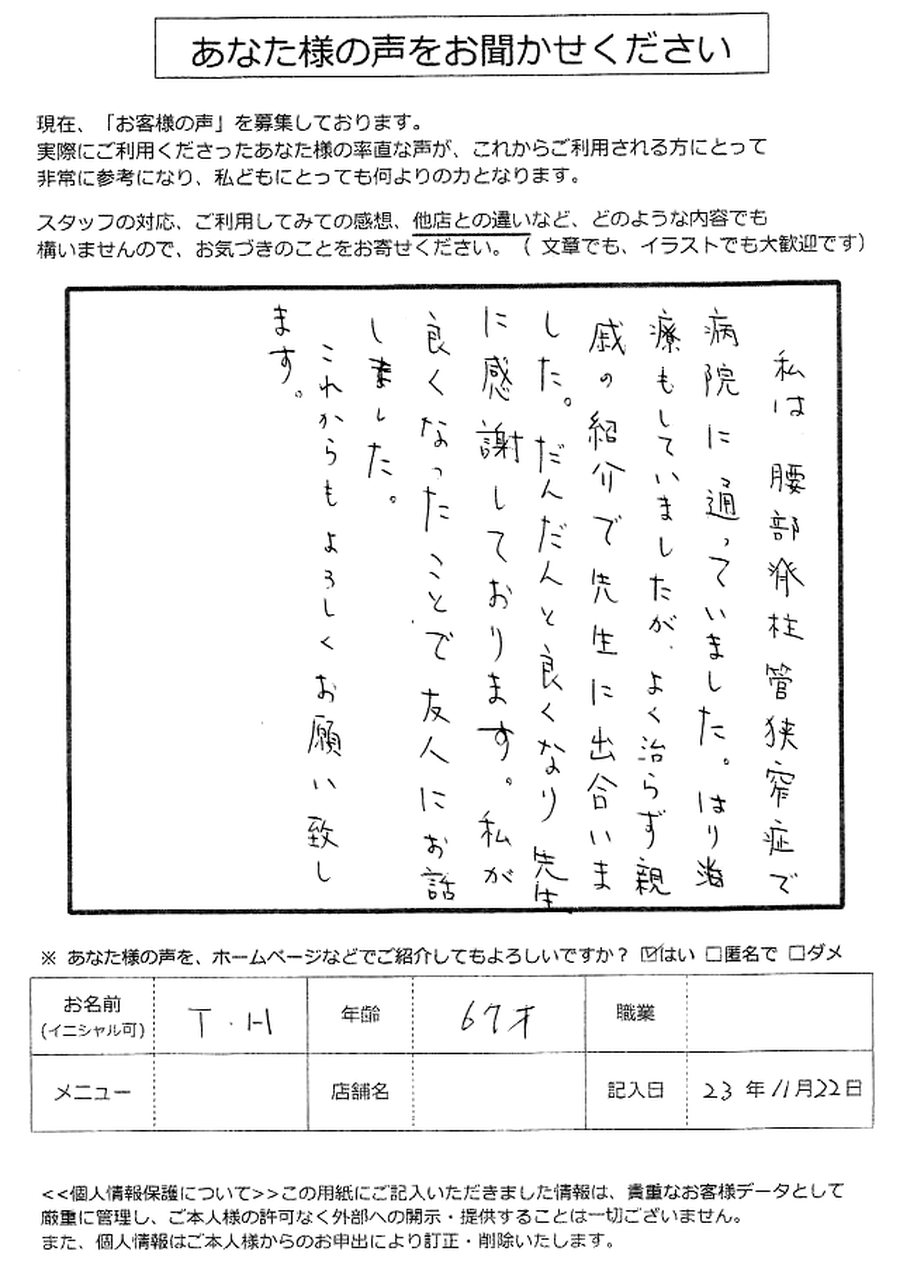 あなた様の声をお聞かせください
現在、「お客様の声」を募集しております。
実際にご利用くださったあなた様の率直な声が、これからご利用される方にとって
非常に参考になり、私どもにとっても何よりの力となります。
スタッフの対応、ご利用してみての感想、他店との違いなど、どのような内容でも
構いませんので、お気づきのことをお寄せください。（ 文章でも、イラストでも大歓迎です）
私は 腰部脊柱管狭窄症で
病院に通っていました。はり治
療もしていましたが、よく治らず親
戚の紹介で先生に出合いま
した。だんだんと良くなり先生
に感謝しております。私が
良くなったことで友人にお話
しました。
これからもよろしくお願い致し
ます。
※ あなた様の声を、ホームページなどでご紹介してもよろしいですか？ ☑はい □匿名で □ダメ
お名前
(イニシャル可)
T・H
年齢
67才
職業
メニュー
店舗名
記入日
23年11月22日
<<個人情報保護について>>この用紙にご記入いただきました情報は、貴重なお客様データとして
厳重に管理し、ご本人様の許可なく外部への開示・提供することは一切ございません。
また、個人情報はご本人様からのお申出により訂正・削除いたします。